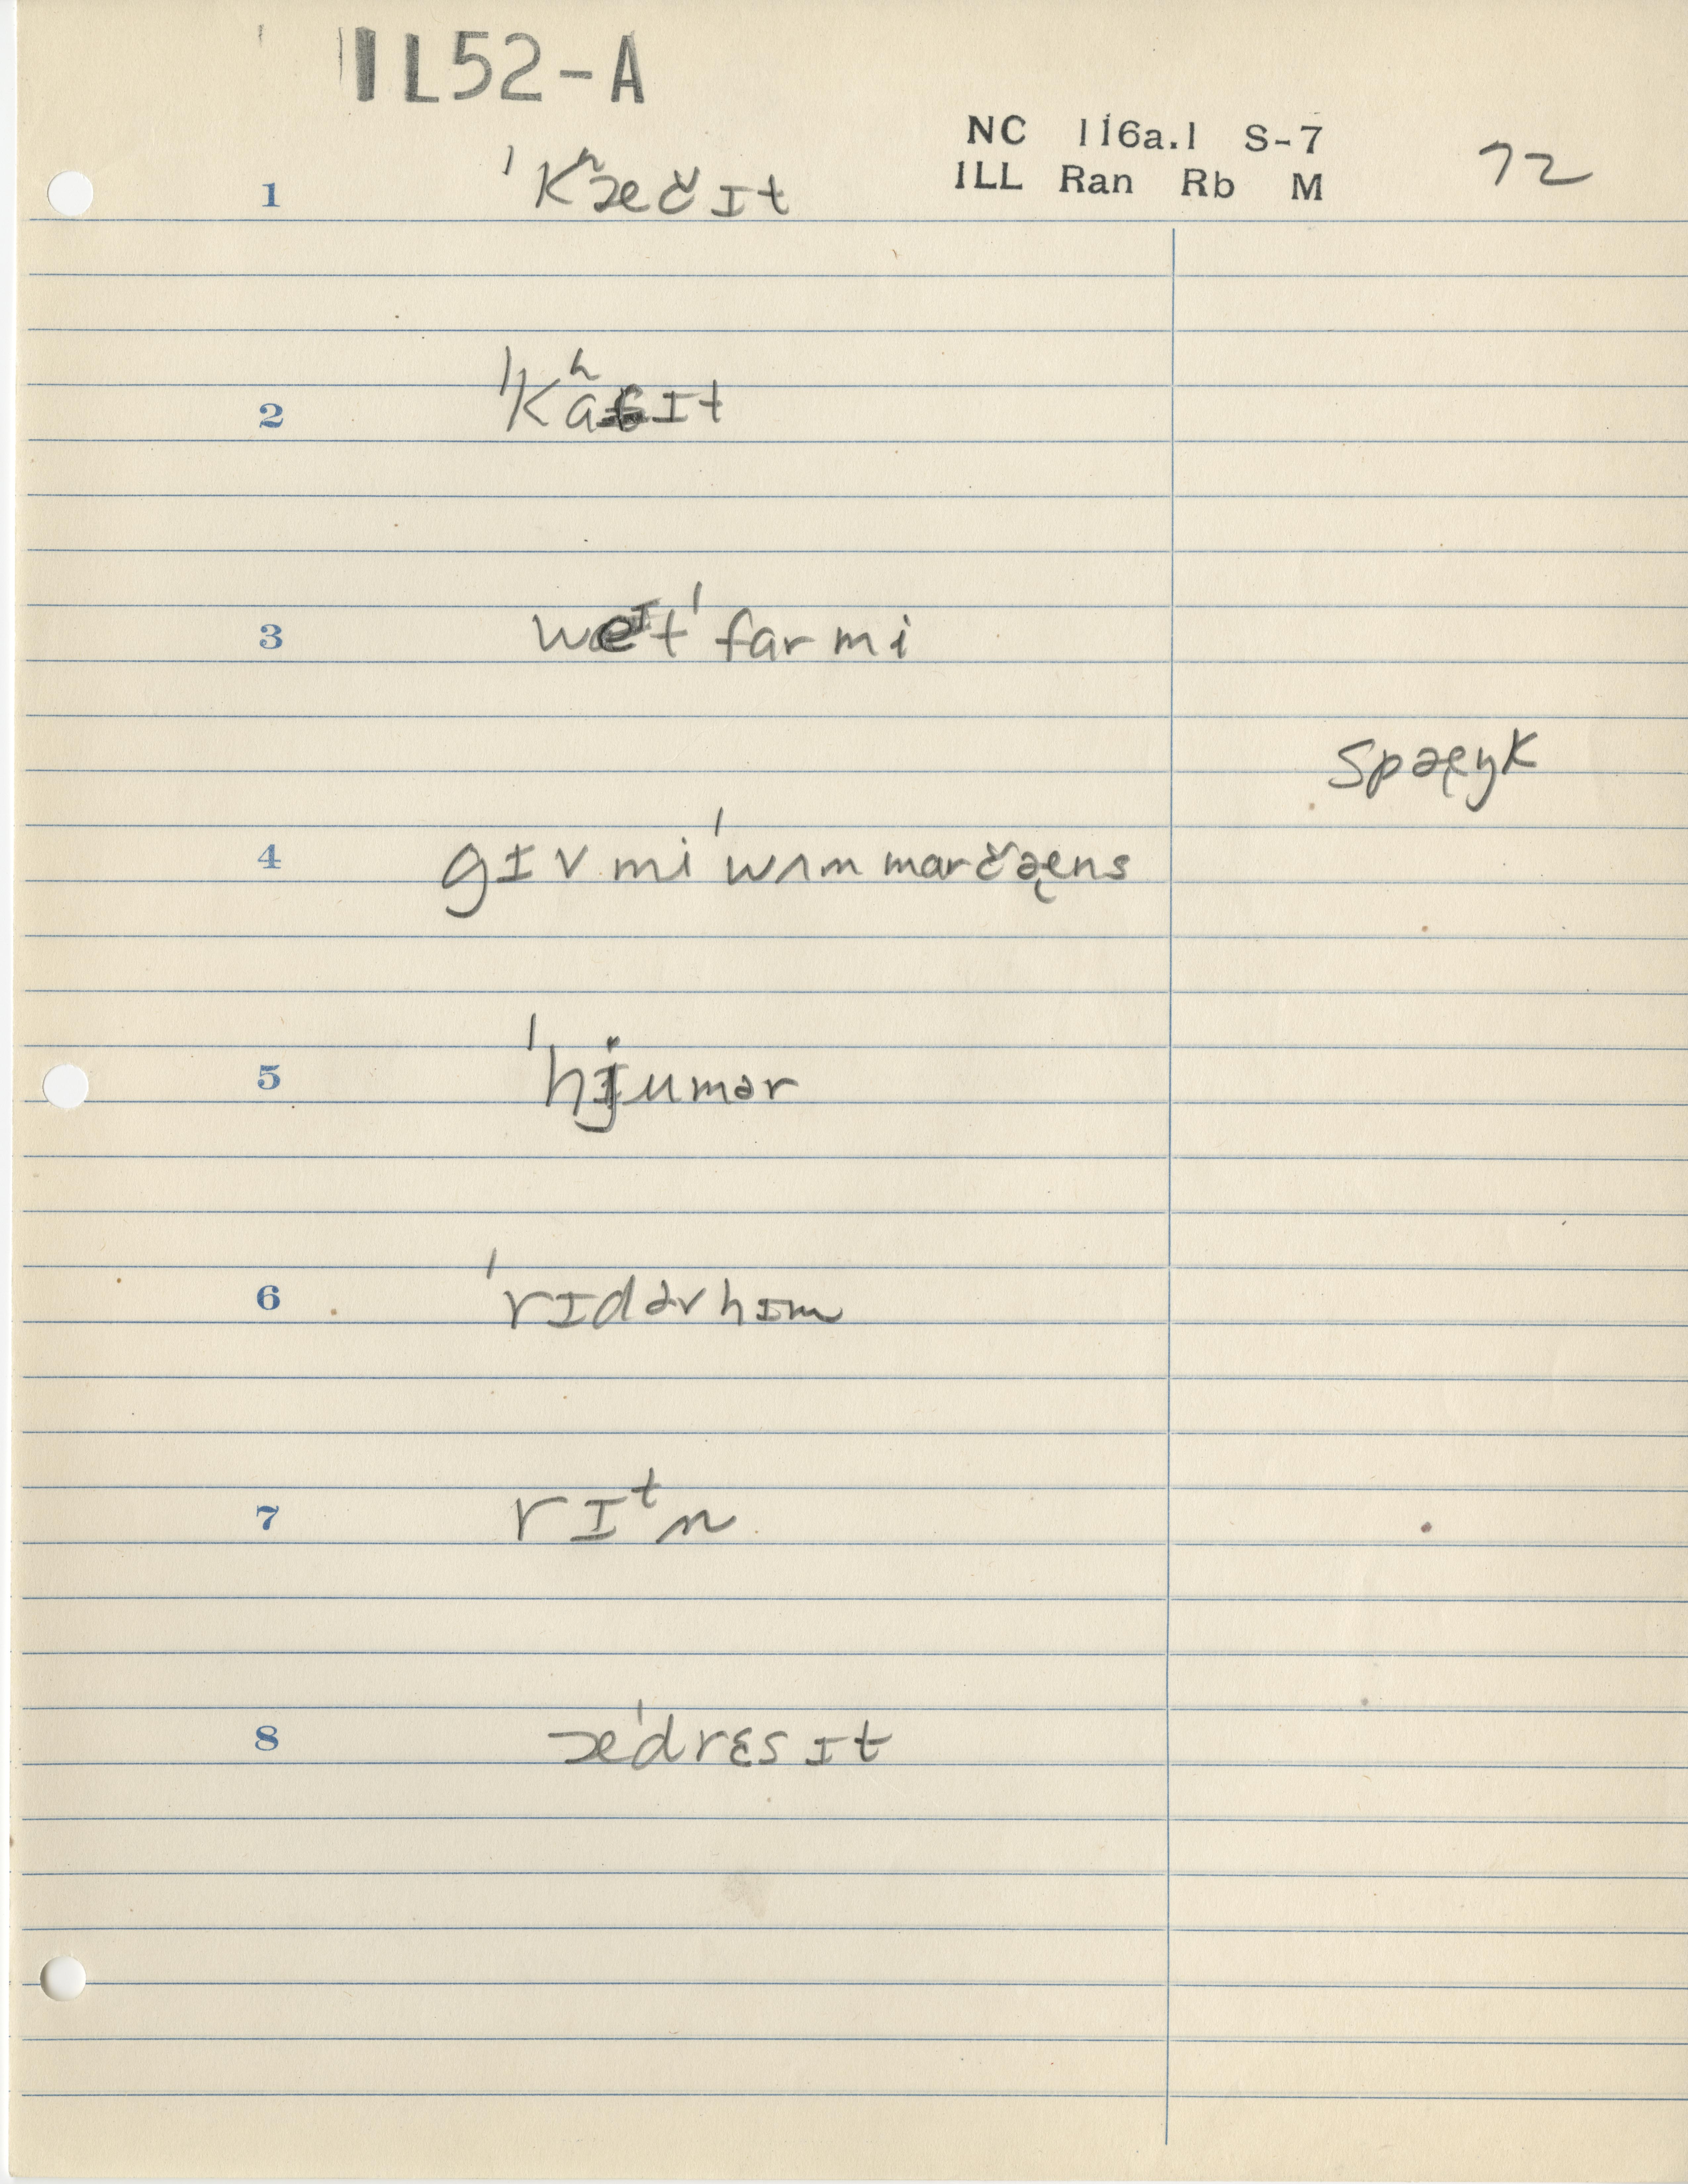 IL52-A
NC 116a.1 S-7
ILL Ran Rb M
72
1 ˈkʰæčɪt
2 ˈkʰɑtɪt
3 weɪtˈfarmi
spæɛyk
4 gɪvmiˈwʌmmɑrčæ̨ens
5 ˈhjumər
6 ˈrɪdərhɪm
7 rɪᵗn
8 æˈdrɛsɪt